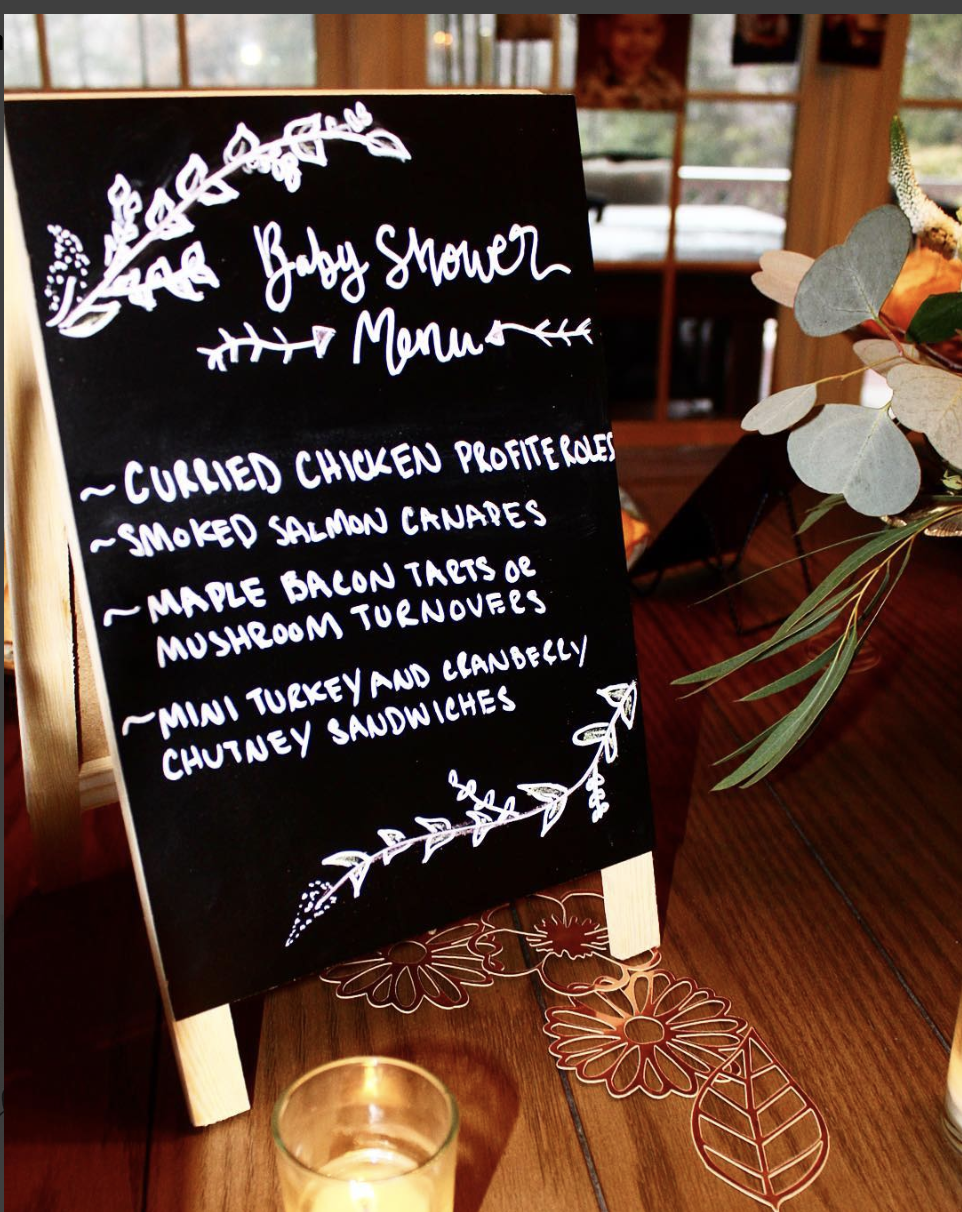 Baby Shower
Menu
~CURRIED CHICKEN PROFITEROLES
~SMOKED SALMON CANAPES
~MAPLE BACON TARTS OR
MUSHROOM TURNOVERS
~MINI TURKEY AND CRANBERRY
CHUTNEY SANDWICHES